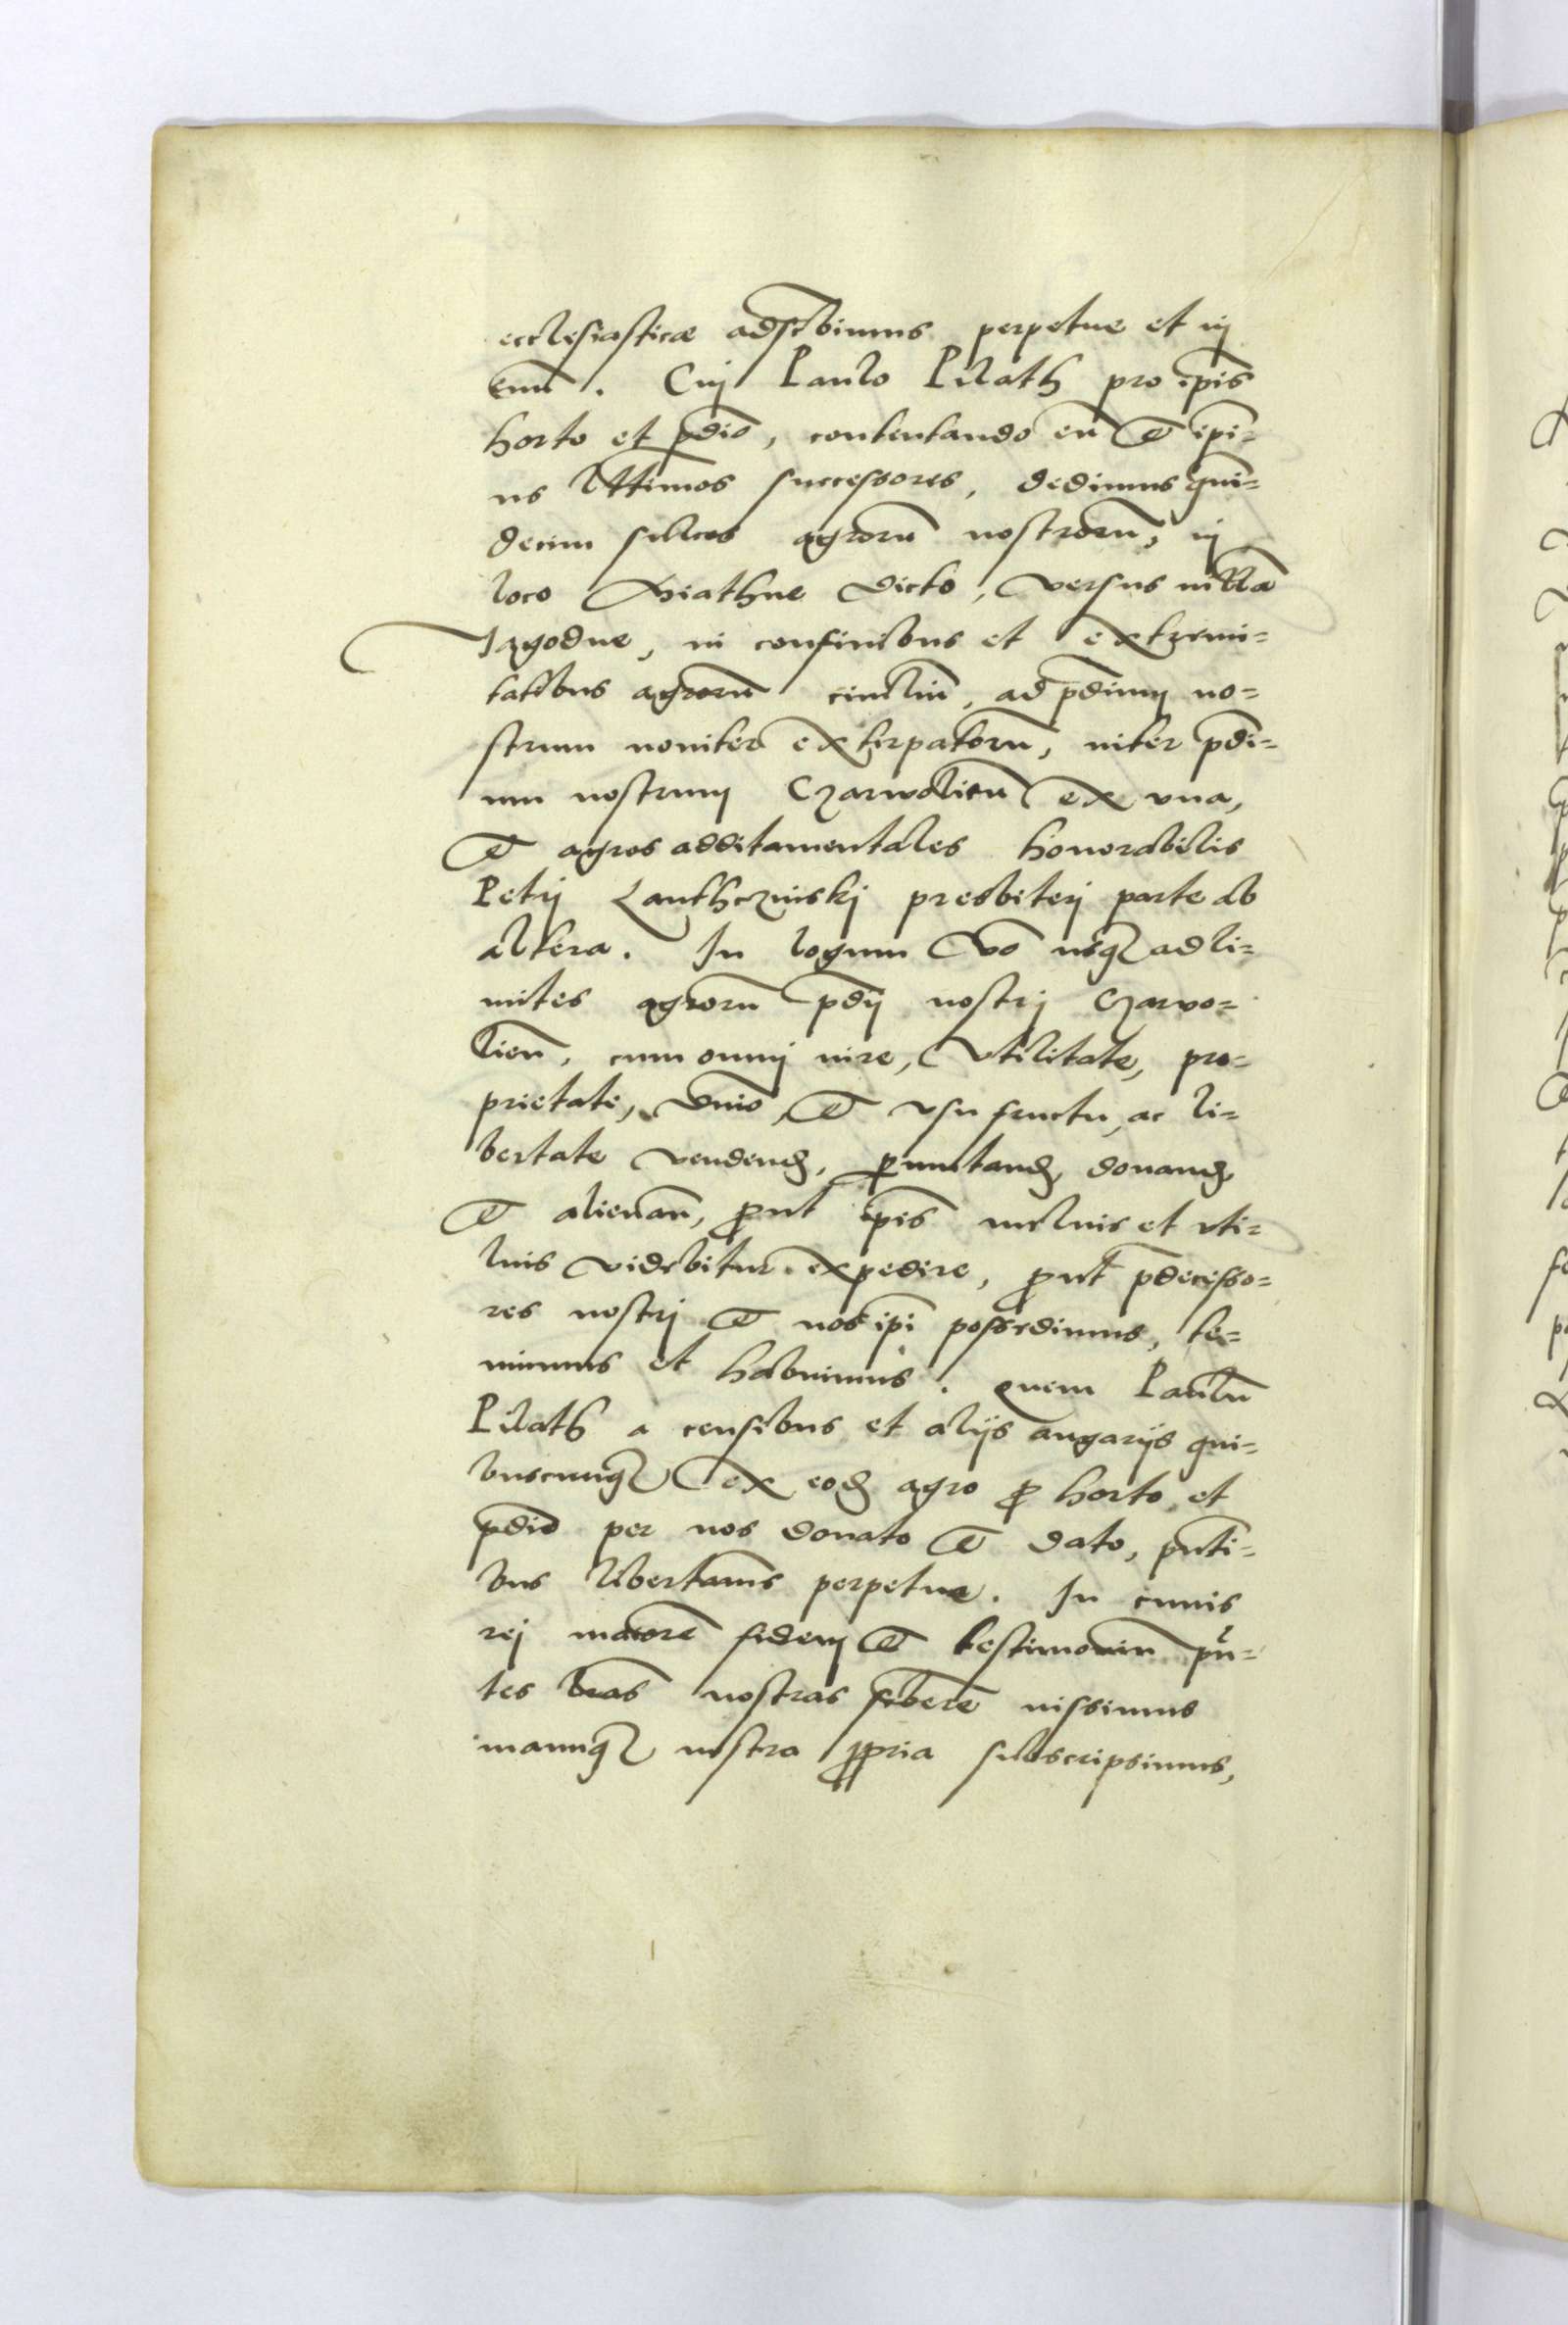 ecclesiasticæ adscribimus perpetue et in
eun̄. Cuj Paulo Pilath pro ip̄ius
horto et p̄dio, contentando eū et ip̄i=
us lttimos successores, dedimus quin=
decim sulcos agrorū nostrorū, in
loco Xiathne dicto, versus villā
Jagodne, in confinibus et extremi=
tatibus agrorū ciuiliū, ad p̄dium no=
strum nouiter extirpatorū, inter p̄di=
um nostrum Czarwolicn̄ ex vna,
et agros additamentales honorabilis
Petrj Lanthczinskj presbiterj parte ab
altera. In logum v̄o usq ad li=
mites agrorū p̄dij nostrj Czarwo=
licn̄, cum omnj iure, vtilitate, pro=
prietate, dn̄io, et vsufructu, ac li=
bertate vendend, permutand, donand,
et alienan̄, prout ip̄is melius et vti=
lius videbitur expedire, prout p̄decesso=
res nostrj et nos ip̄i possedimus, te=
nuimus et habuimus. Quem Paulū
Pilath a censibus et alijs angarijs qui=
buscunq ex eod agro p horto et
p̄dio per nos donato et dato, pn̄ti=
bus libertamus perpetue. In cuius
rej maiorē fidem et testimoniū pn̄=
tes lr̄as nostras scribere iussimus
manuq nostra ppria subscripsimus,